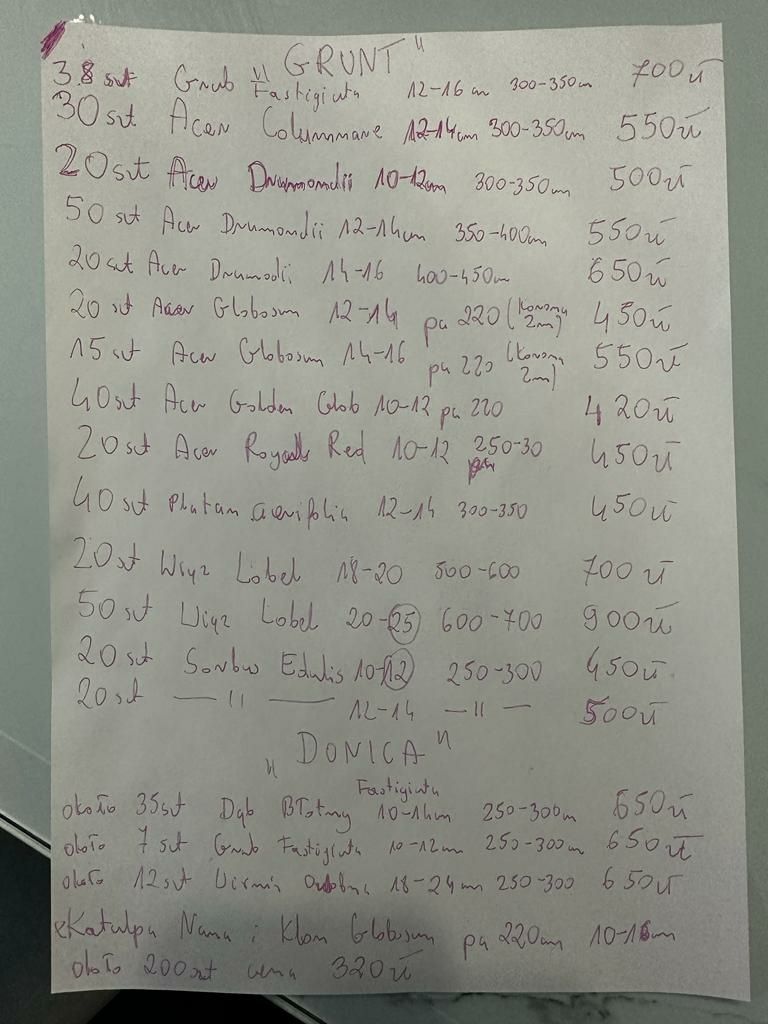 "GRUNT"
38 szt Grab Fastigiata 12-16cm 300-350cm 700zł
30 szt Acer Columnare 12-14cm 300-350cm 550zł
20szt Acer Drumondii 10-12cm 300-350cm 500zł
50 szt Acer Drumondii 12-14cm 350-400cm 550zł
20szt Acer Drumodii 14-16 400-450cm 650zł
20 szt Acer Globosum 12-14 pa 220 (korona 2m) 450zł
15szt Acer Globosum 14-16 pa 220 (korona 2m) 550zł
40szt Acer Golden Glob 10-12 pa 220 420zł
20szt Acer Royals Red 10-12 250-30 450zł
40szt Platan acerifolia 12-14 300-350 450zł
20szt Wiąz Lobel 18-20 500-600 700zł
50szt Wiąz Lobel 20-25 600-700 900zł
20szt Sorbus Edulis 10-12 250-300 450zł
20szt —— 11 —— 12-14 — 11 — 500zł
"DONICA"
około 35szt Dąb Błotny Fastigiata 10-14cm 250-300cm 650zł
około 7 szt Grab Fastigiata 10-12cm 250-300cm 650zł
około 12szt Wiśnia Ozdobna 18-24cm 250-300 650zł
Katalpa Nana i Klon Globosum pa 220cm 10-16cm
około 200szt cena 320zł